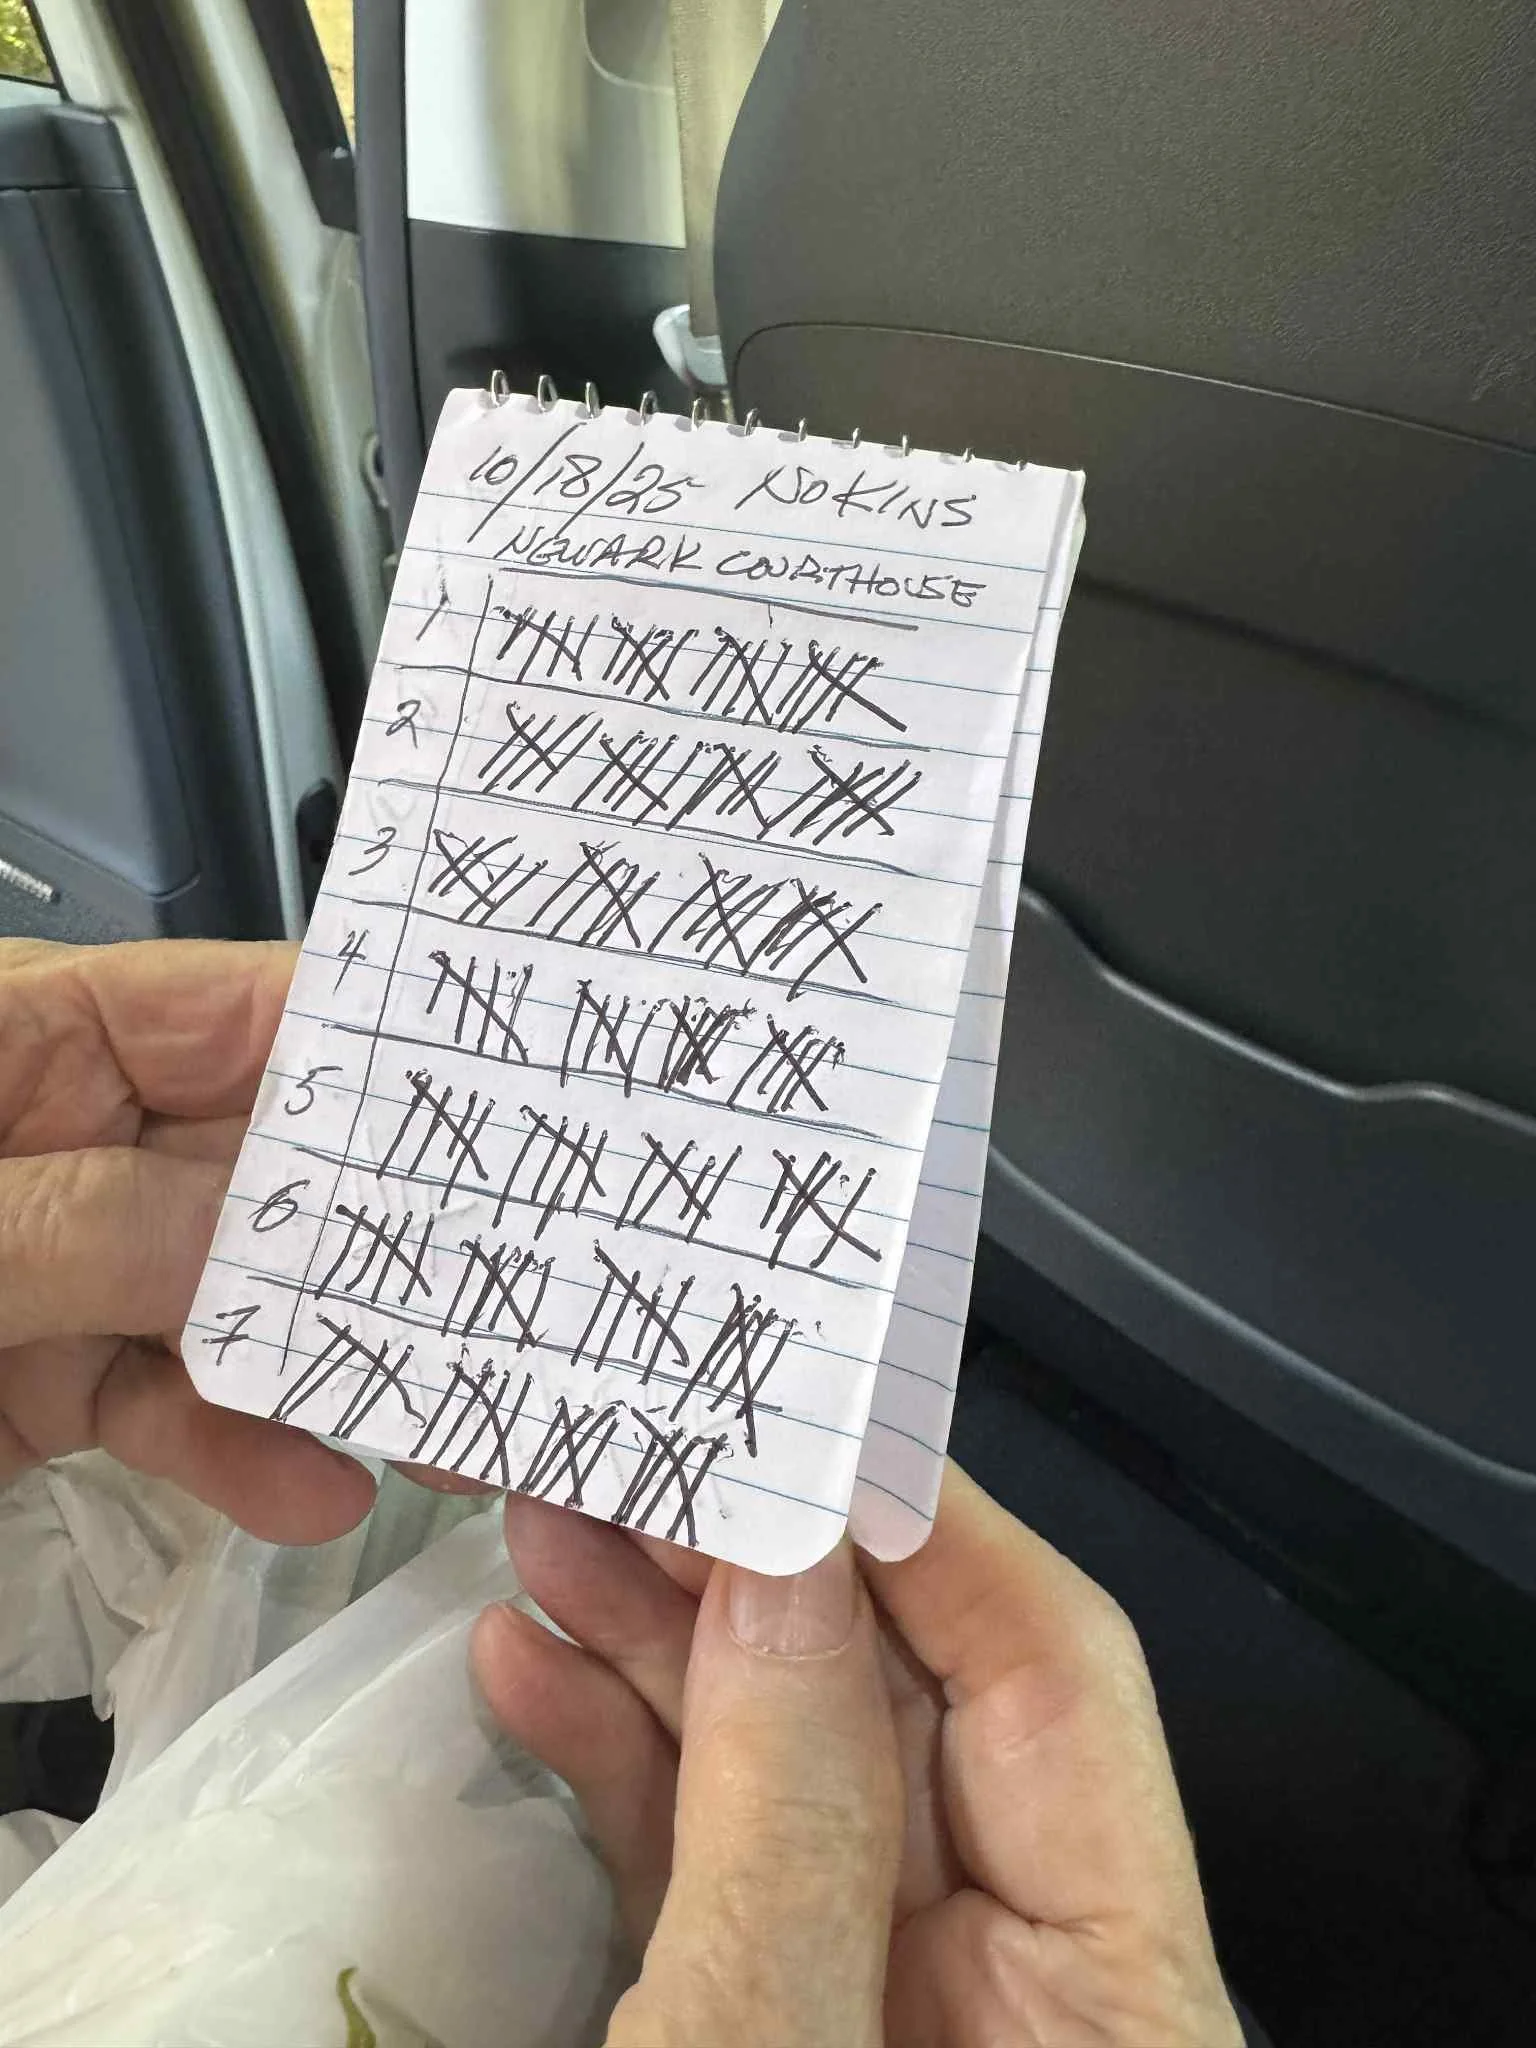 10/18/25 NO KINS
NEWARK COURTHOUSE
1
2
3
4
5
6
7